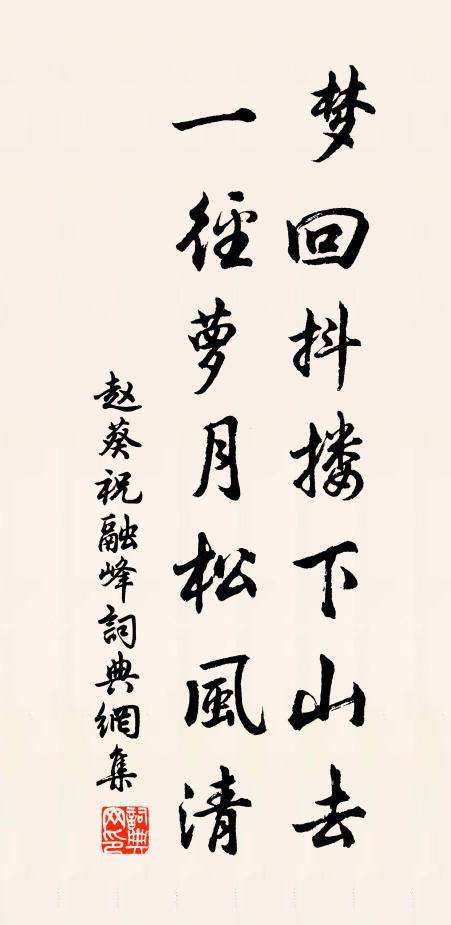 梦回抖搂下山去
一径萝月松風清
赵葵祝融峰詞典網集
詞典网印